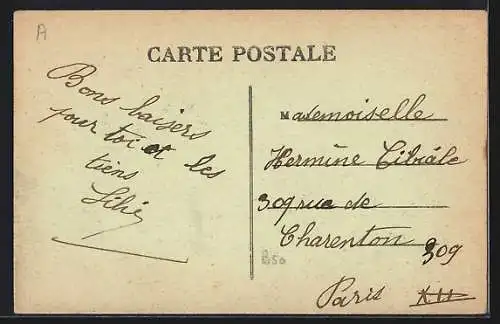 A
CARTE POSTALE
Bons baisers
pour toi et les
tiens
Lilie
Mademoiselle
Hermine Cibiále
309 rue de
Charenton 309
Paris XII